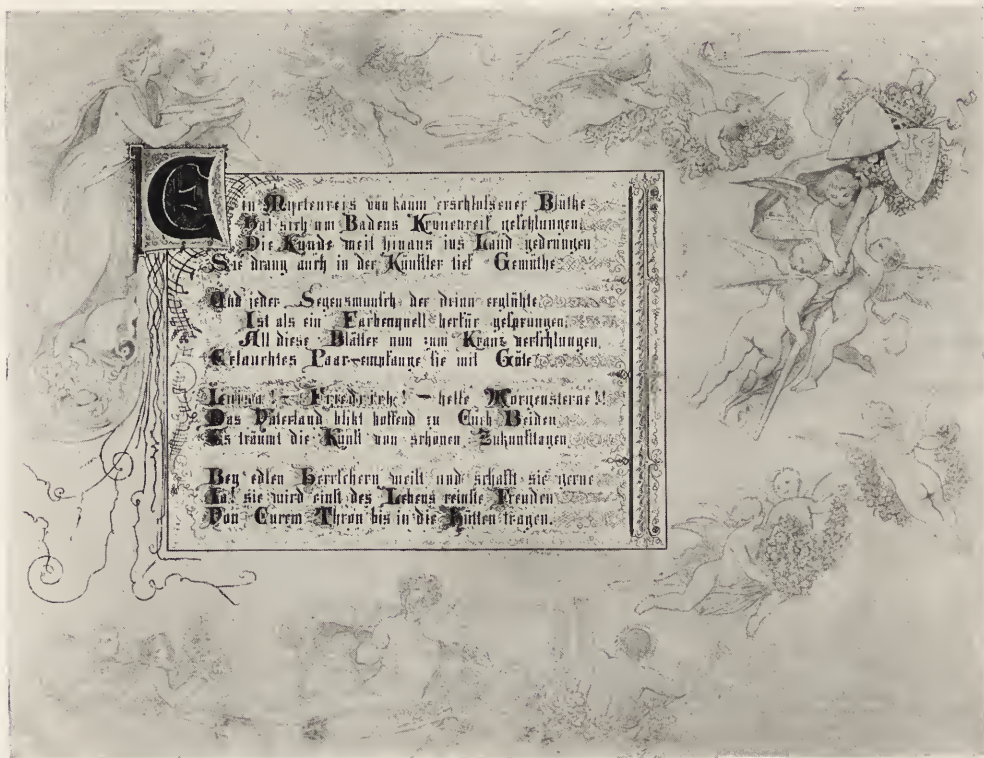 Ein Myrtenreis von kaum erschlossener Blüthe
Hat sich um Badens Kronenreif geschlungen.
Die Kunde weit hinaus ins Land gedrungen
Sie drang auch in der Künstler tief Gemüthe.
Und jeder Segenswunsch der drinn erglühte,
Ist als ein Farbenquell herfür gesprungen,
All diese Blätter nun zum Kranz verschlungen,
Erlauchtes Paar – empfange sie mit Güte.
Louise! – Friedrich! – helle Morgensterne!!
Das Vaterland blikt hoffend zu Euch Beiden,
Es träumt die Kunst von schönen Zukunfttagen
Bey edlen Herrschern weilt und schafft sie gerne
Ja! sie wird einst des Lebens reinste Freuden
Von Eurem Thron bis in die Hütten tragen.